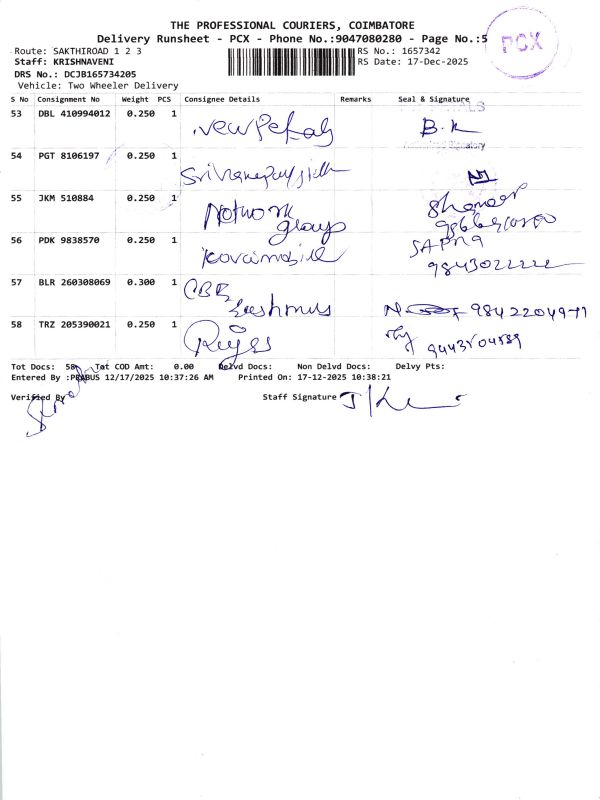 THE PROFESSIONAL COURIERS, COIMBATORE
Delivery Runsheet - PCX - Phone No.:9047080280 - Page No.:5
PCX
Route: SAKTHIROAD 1 2 3
RS No.: 1657342
Staff: KRISHNAVENI
RS Date: 17-Dec-2025
DRS No.: DCJB165734205
Vehicle: Two Wheeler Delivery
S No Consignment No Weight PCS Consignee Details Remarks Seal & Signature
53 DBL 410994012 0.250 1 New Petals B.K
54 PGT 8106197 0.250 1
55 JKM 510884 0.250 1 Network group
56 PDK 9838570 0.250 1 kovai mobile SAPNA 9843022222
57 BLR 260308069 0.300 1 CBE
58 TRZ 205390021 0.250 1
Tot Docs: 58 Tot COD Amt: 0.00 Delvd Docs: Non Delvd Docs: Delvy Pts:
Entered By :PRABUS 12/17/2025 10:37:26 AM Printed On: 17-12-2025 10:38:21
Verified By Staff Signature